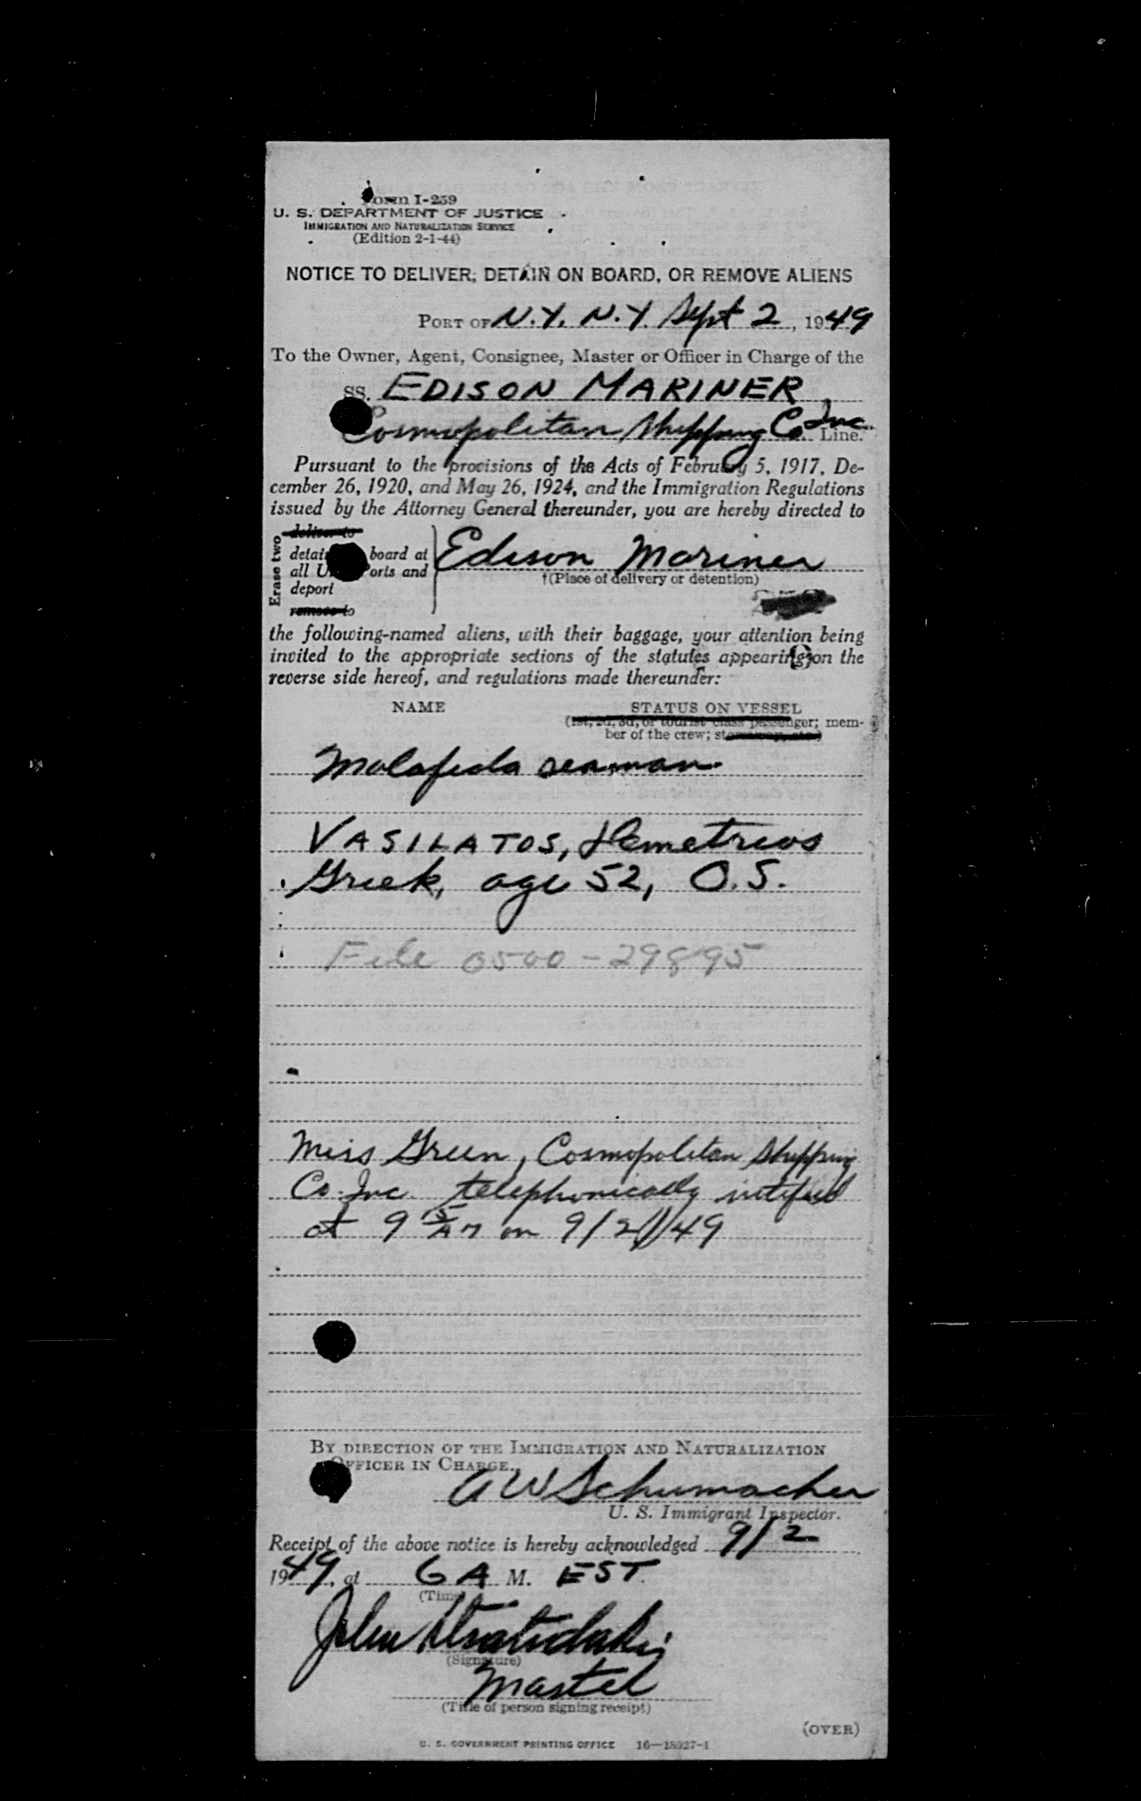 Form I-259
U. S. DEPARTMENT OF JUSTICE
IMMIGRATION AND NATURALIZATION SERVICE
(Edition 2-1-44)
NOTICE TO DELIVER, DETAIN ON BOARD, OR REMOVE ALIENS
PORT OF N.Y. N.Y. Sept 2, 1949
To the Owner, Agent, Consignee, Master or Officer in Charge of the
SS. EDISON MARINER
Cosmopolitan Shipping Co Inc. Line.
Pursuant to the provisions of the Acts of February 5, 1917, De-
cember 26, 1920, and May 26, 1924, and the Immigration Regulations
issued by the Attorney General thereunder, you are hereby directed to
Erase two
deliver to
detain board at
all U orts and
deport
remove to
Edison Mariner
†(Place of delivery or detention)
the following-named aliens, with their baggage, your attention being
invited to the appropriate sections of the statutes appearing on the
reverse side hereof, and regulations made thereunder:
NAME STATUS ON VESSEL
(1st, 2d, 3d, or tourist class passenger; mem-
ber of the crew; stowaway, etc.)
Malafeda seaman
VASILATOS, Demetrios
Greek, age 52, O.S.
File 0500-29895
Miss Green, Cosmopolitan Shipping
Co. Inc. telephonically notified
at 9 15 AM on 9/2/49
BY DIRECTION OF THE IMMIGRATION AND NATURALIZATION
OFFICER IN CHARGE.
A W Schumacher
U. S. Immigrant Inspector.
Receipt of the above notice is hereby acknowledged 9/2
1949, at 6 A M. EST.
(Time)
John
(Signature)
Master
(Title of person signing receipt)
(OVER)
U. S. GOVERNMENT PRINTING OFFICE 16—18927-1